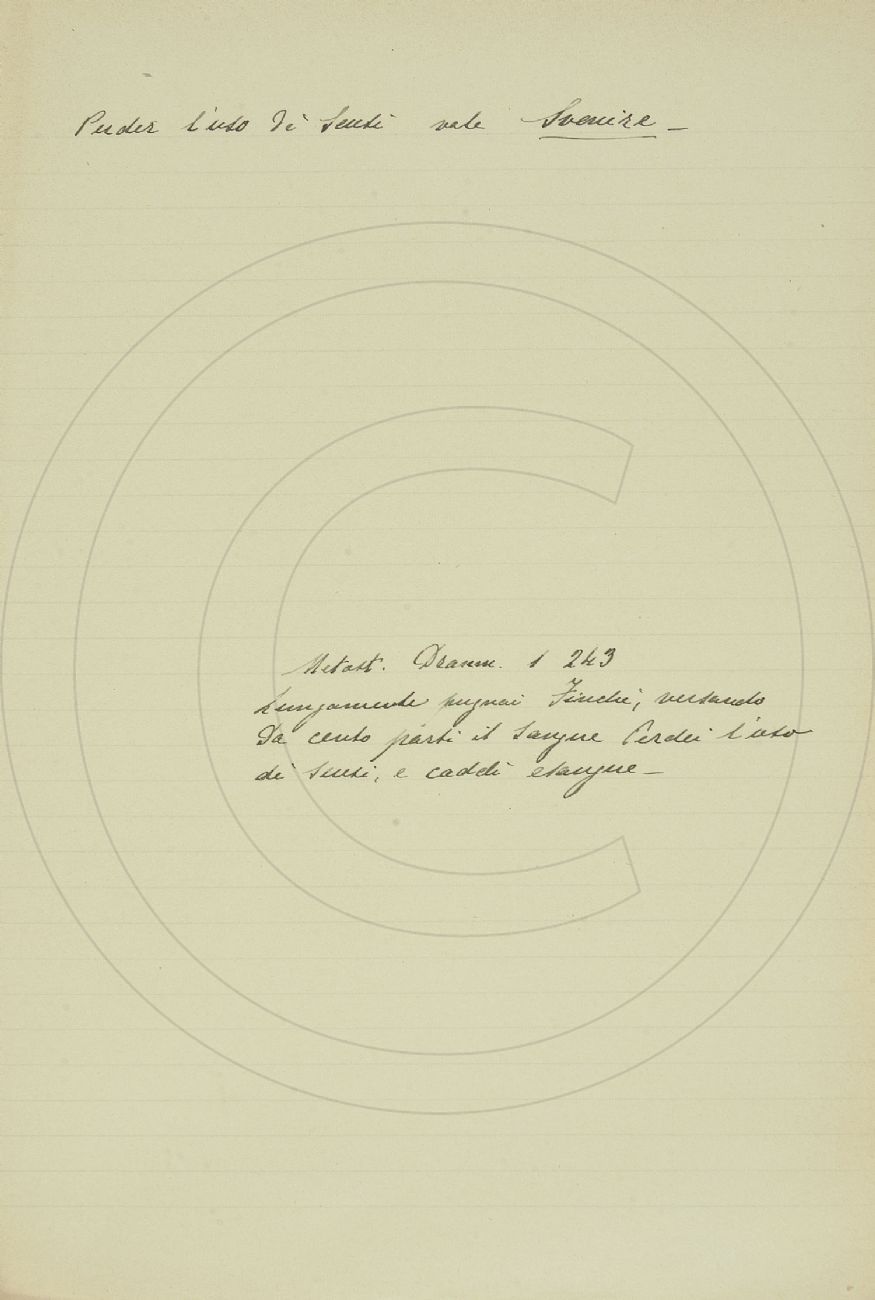 Perder l'uso di sensi vale Svenire –
Metast. Dramm. 1 243
Lungamente pugnai Finchè, versando
Da cento parti il sangue Perdei l'uso
di sensi, e caddi esangue –